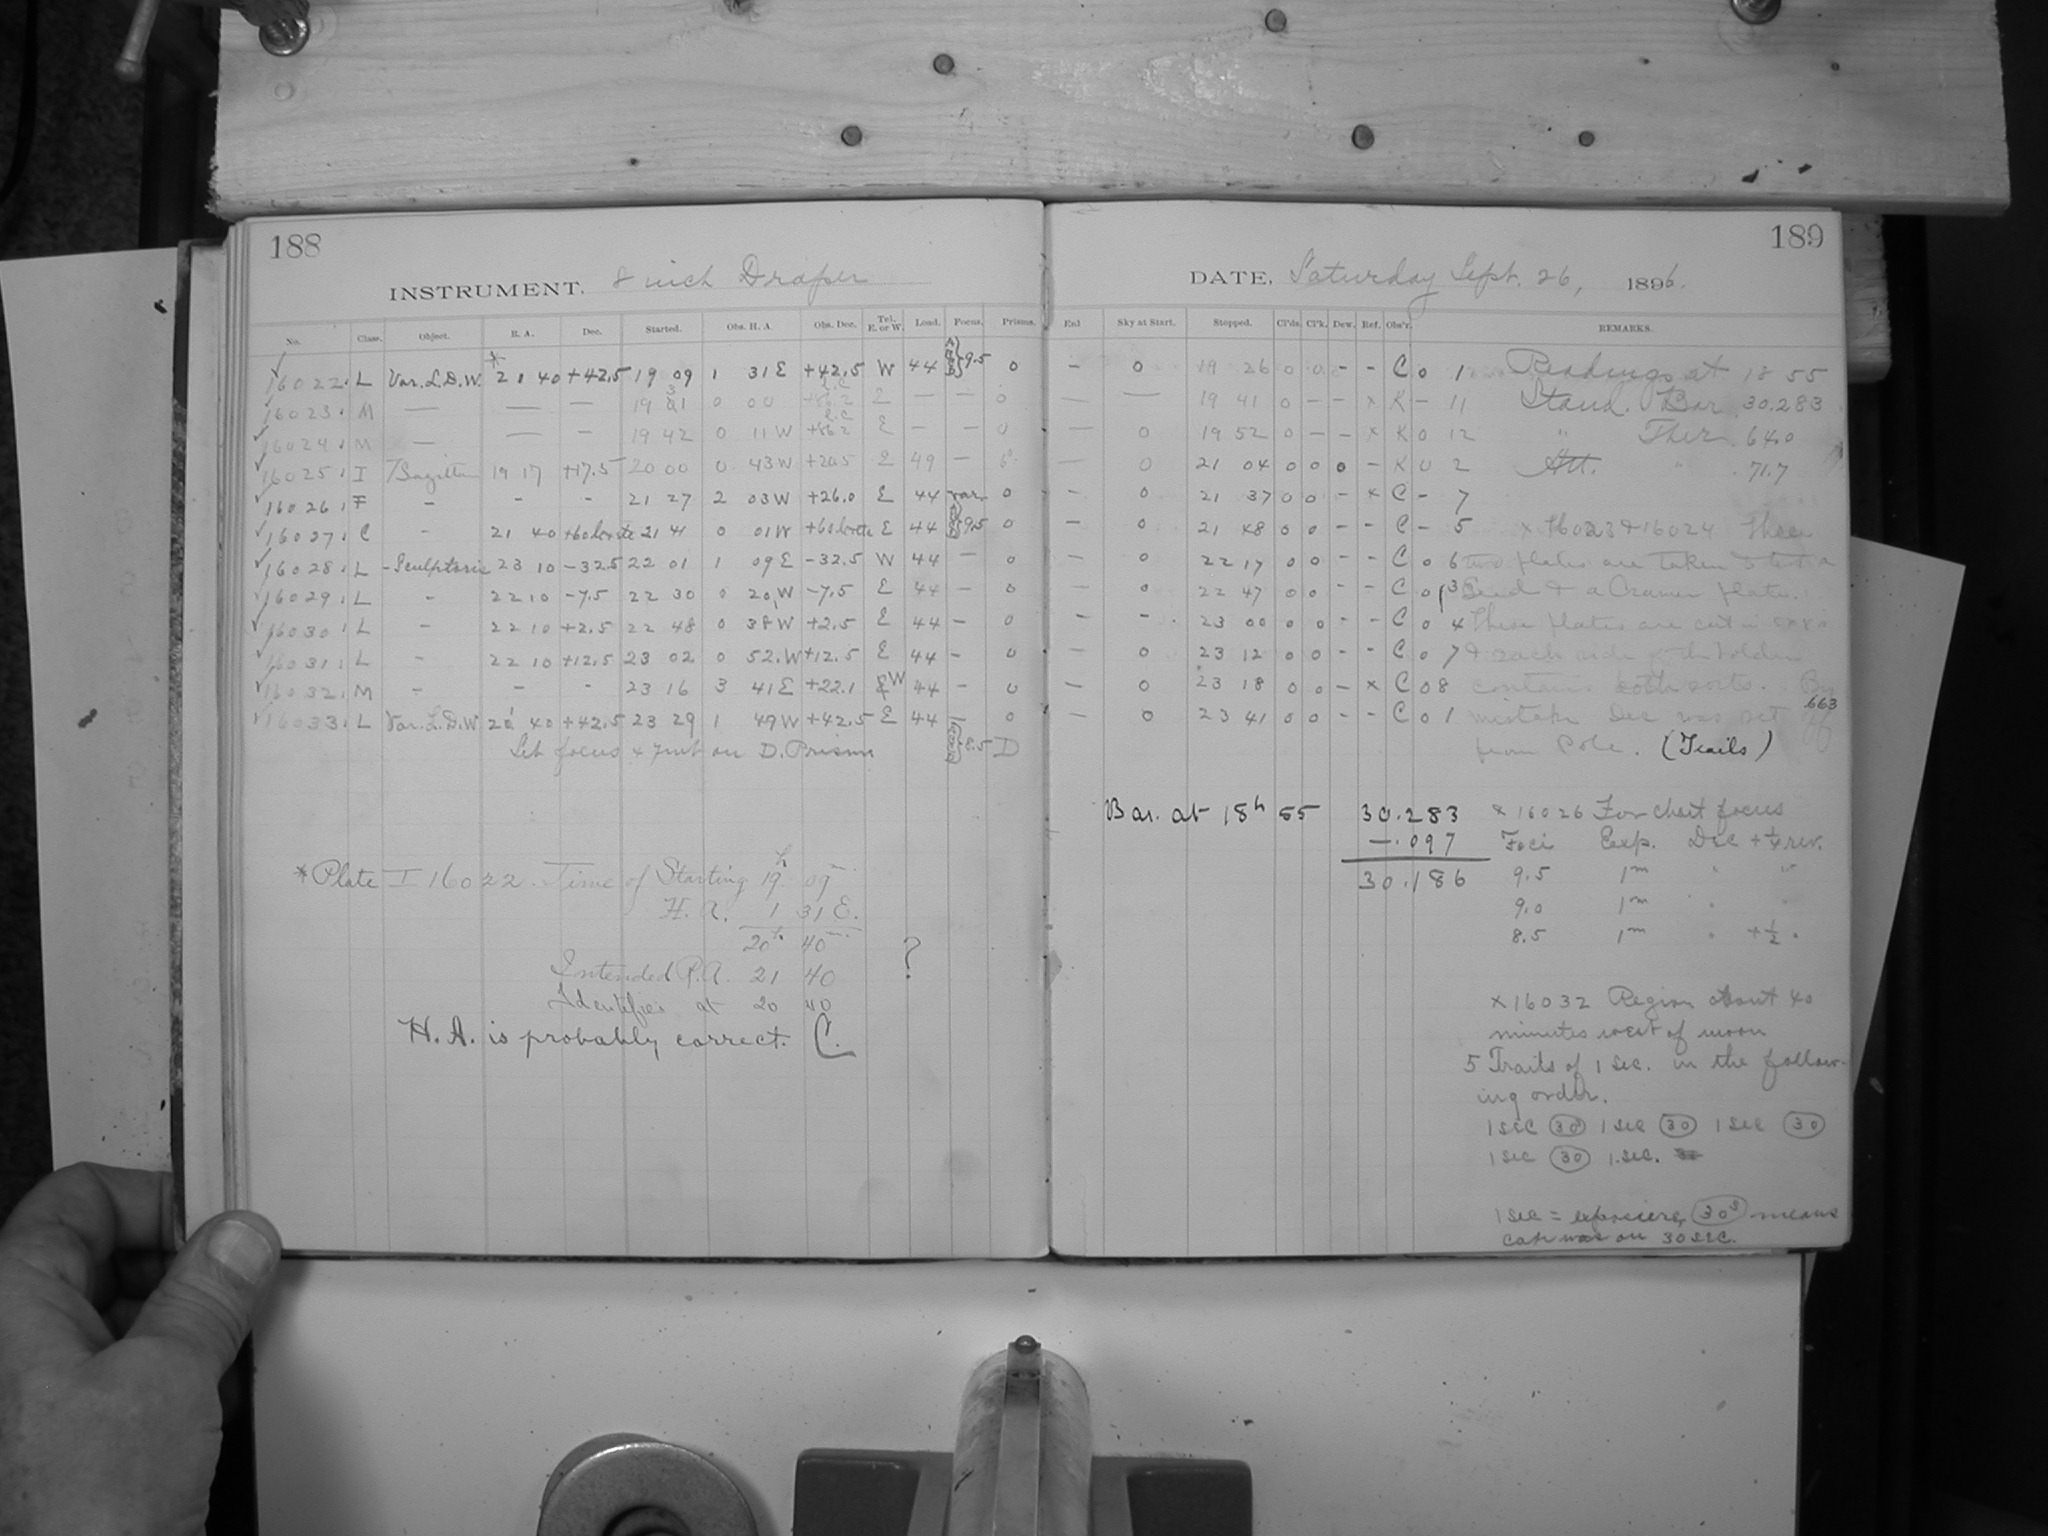 188
INSTRUMENT. 8 inch Draper
No. Class. Object. R. A. Dec. Started. Obs. H. A. Obs. Dec. Tel. E. or W. Load. Focus. Prisms.
16022. L Var. L.D.W. * 21 40 +42.5 19 09 1 31 E +42.5 W 44 9.5 0
16023. M — — — 19 31 0 00 E — — 0
16024. M — — — 19 42 0 11 W E — — 0
16025. I Sagittae 19 17 +17.5 20 00 0 43 W +20.5 E 49 —
16026. F - - - 21 27 2 03 W +26.0 E 44 var. 0
16027. C - 21 40 +60 21 41 0 01 W +60 E 44 9.5 0
16028. L - Sculptoris 23 10 -32.5 22 01 1 09 E -32.5 W 44 — 0
16029. L - 22 10 -7.5 22 30 0 20 W -7.5 E 44 - 0
16030. L - 22 10 +2.5 22 48 0 38 W +2.5 E 44 - 0
16031. L - 22 10 +12.5 23 02 0 52. W +12.5 E 44 - 0
16032. M - - - 23 16 3 41 E +22.1 W 44 - 0
16033. L Var. L.D.W 40 +42.5 23 29 1 49 W +42.5 E 44 - 0
Set focus & put on D. Prism 8.5 D
* Plate I 16022. Time of Starting 19h 09m.
H. A. 1 31 E.
20h 40m. ?
Intended R.A. 21 40
Identifies at 20 40
H. A. is probably correct. C.
189
DATE, Saturday Sept. 26, 1896.
Enl Sky at Start. Stopped. Cl'ds. Cl'k. Dew. Ref. Obs'r. REMARKS.
- 0 19 26 0 - - C 0 1 Readings at 18 55
— — 19 41 0 - - x K - 11 Stand. Bar. 30.283
— 0 19 52 0 - - x K 0 12 " Ther. 64.0
— 0 21 04 0 0 0 - K 0 2 Att. " 71.7
- 0 21 37 0 0 - x C - 7
- 0 21 48 0 0 - - C - 5 x 16023 & 16024 These
- 0 22 17 0 0 - - C 0 6 two plates are taken to test a
- 0 22 47 0 0 - - C 0 3 Seed & a Cramer plate.
- - 23 00 0 0 - - C 0 4 These plates are cut in
- 0 23 12 0 0 - - C 0 7 & each side of the holder
- 0 23 18 0 0 - x C 0 8 contains both sorts. By
- 0 23 41 0 0 - - C 0 1 mistake Dec was set .663
from Pole. (Trails)
Bar. at 18h 55 30.283
-.097
30.186
x 16026 For chart focus
Foci Exp. Dec + 1/4 rev.
9.5 1m " "
9.0 1m " "
8.5 1m " + 1/2 "
x 16032 Region about 40
minutes west of moon
5 Trails of 1 sec. in the follow-
ing order.
1 sec (30) 1 sec (30) 1 sec (30)
1 sec (30) 1 sec.
1 sec = exposure, (30s) means
cap was on 30 sec.